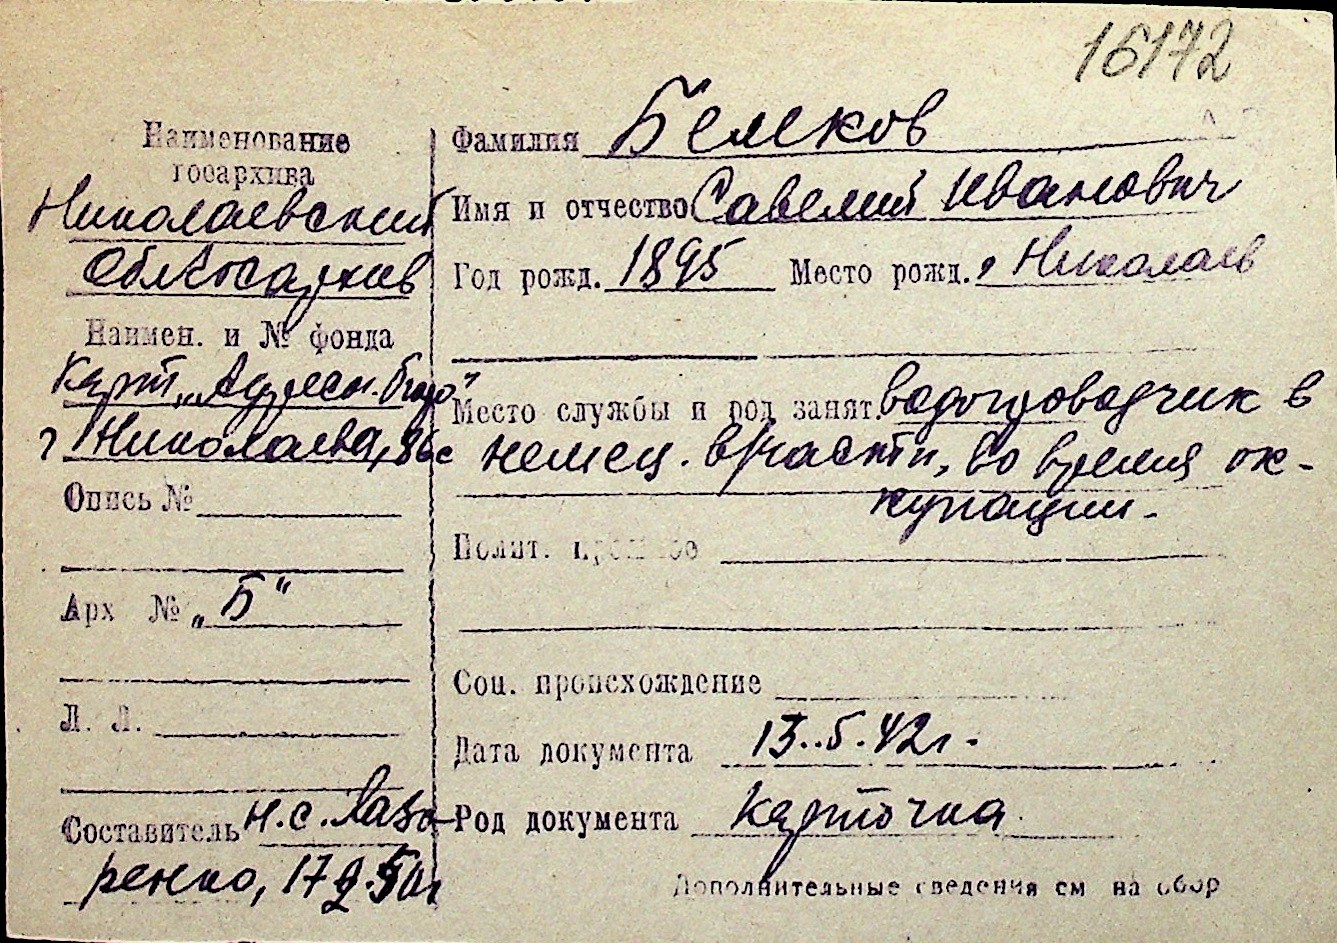 16172
Наименование
госархива
Николаевский
Облгосархив
Наимен. и № фонда
Карт. „Адресн. бюро"
г Николаева,
Опись №
Арх № „Б"
Л. Л.
Составитель Н. С. Лаза-
ренко, 17 9.50г
Фамилия
Имя и отчество Савелий Иванович
Год рожд. 1895 Место рожд. г Николаев
Место службы и род занят. водопроводчик в
немец. в/части, во время ок-
купации.
Полит. прошлое
Соц. происхождение
Дата документа 13.5.42г.
Род документа Карточка
Дополнительные сведения см на обор